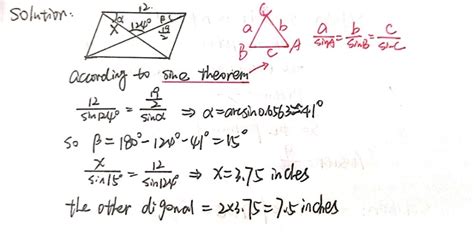 Solution:
12
α 124° β
x 19/2
C
a b
B c A
a/sinA = b/sinB = c/sinC
according to sine theorem
12/sin124° = (19/2)/sinα ⇒ α=arcsin0.6563≈41°
so β=180°-124°-41°=15°
x/sin15° = 12/sin124° ⇒ x=3.75 inches
the other digonal = 2×3.75=7.5 inches